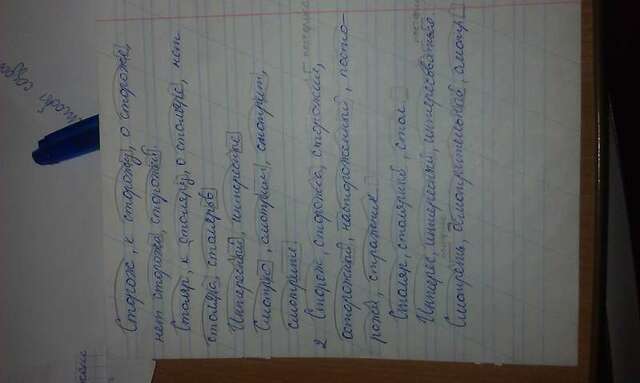 Сторож, к сторожу, о стороже,
нет сторожа, сторожей.
Столяр, к столяру, о столяре, нет
столяра, столяров
Интересный, интересные
Смотрю, смотрит, смотрят,
смотрите
2 Сторож, сторожка, сторожил,
осторожный, настороженный, посто-
рожил, стражник.
Столяр, столярный, стол
Интерес, интересный, интересоваться
Смотреть, осмотрительный, смотр